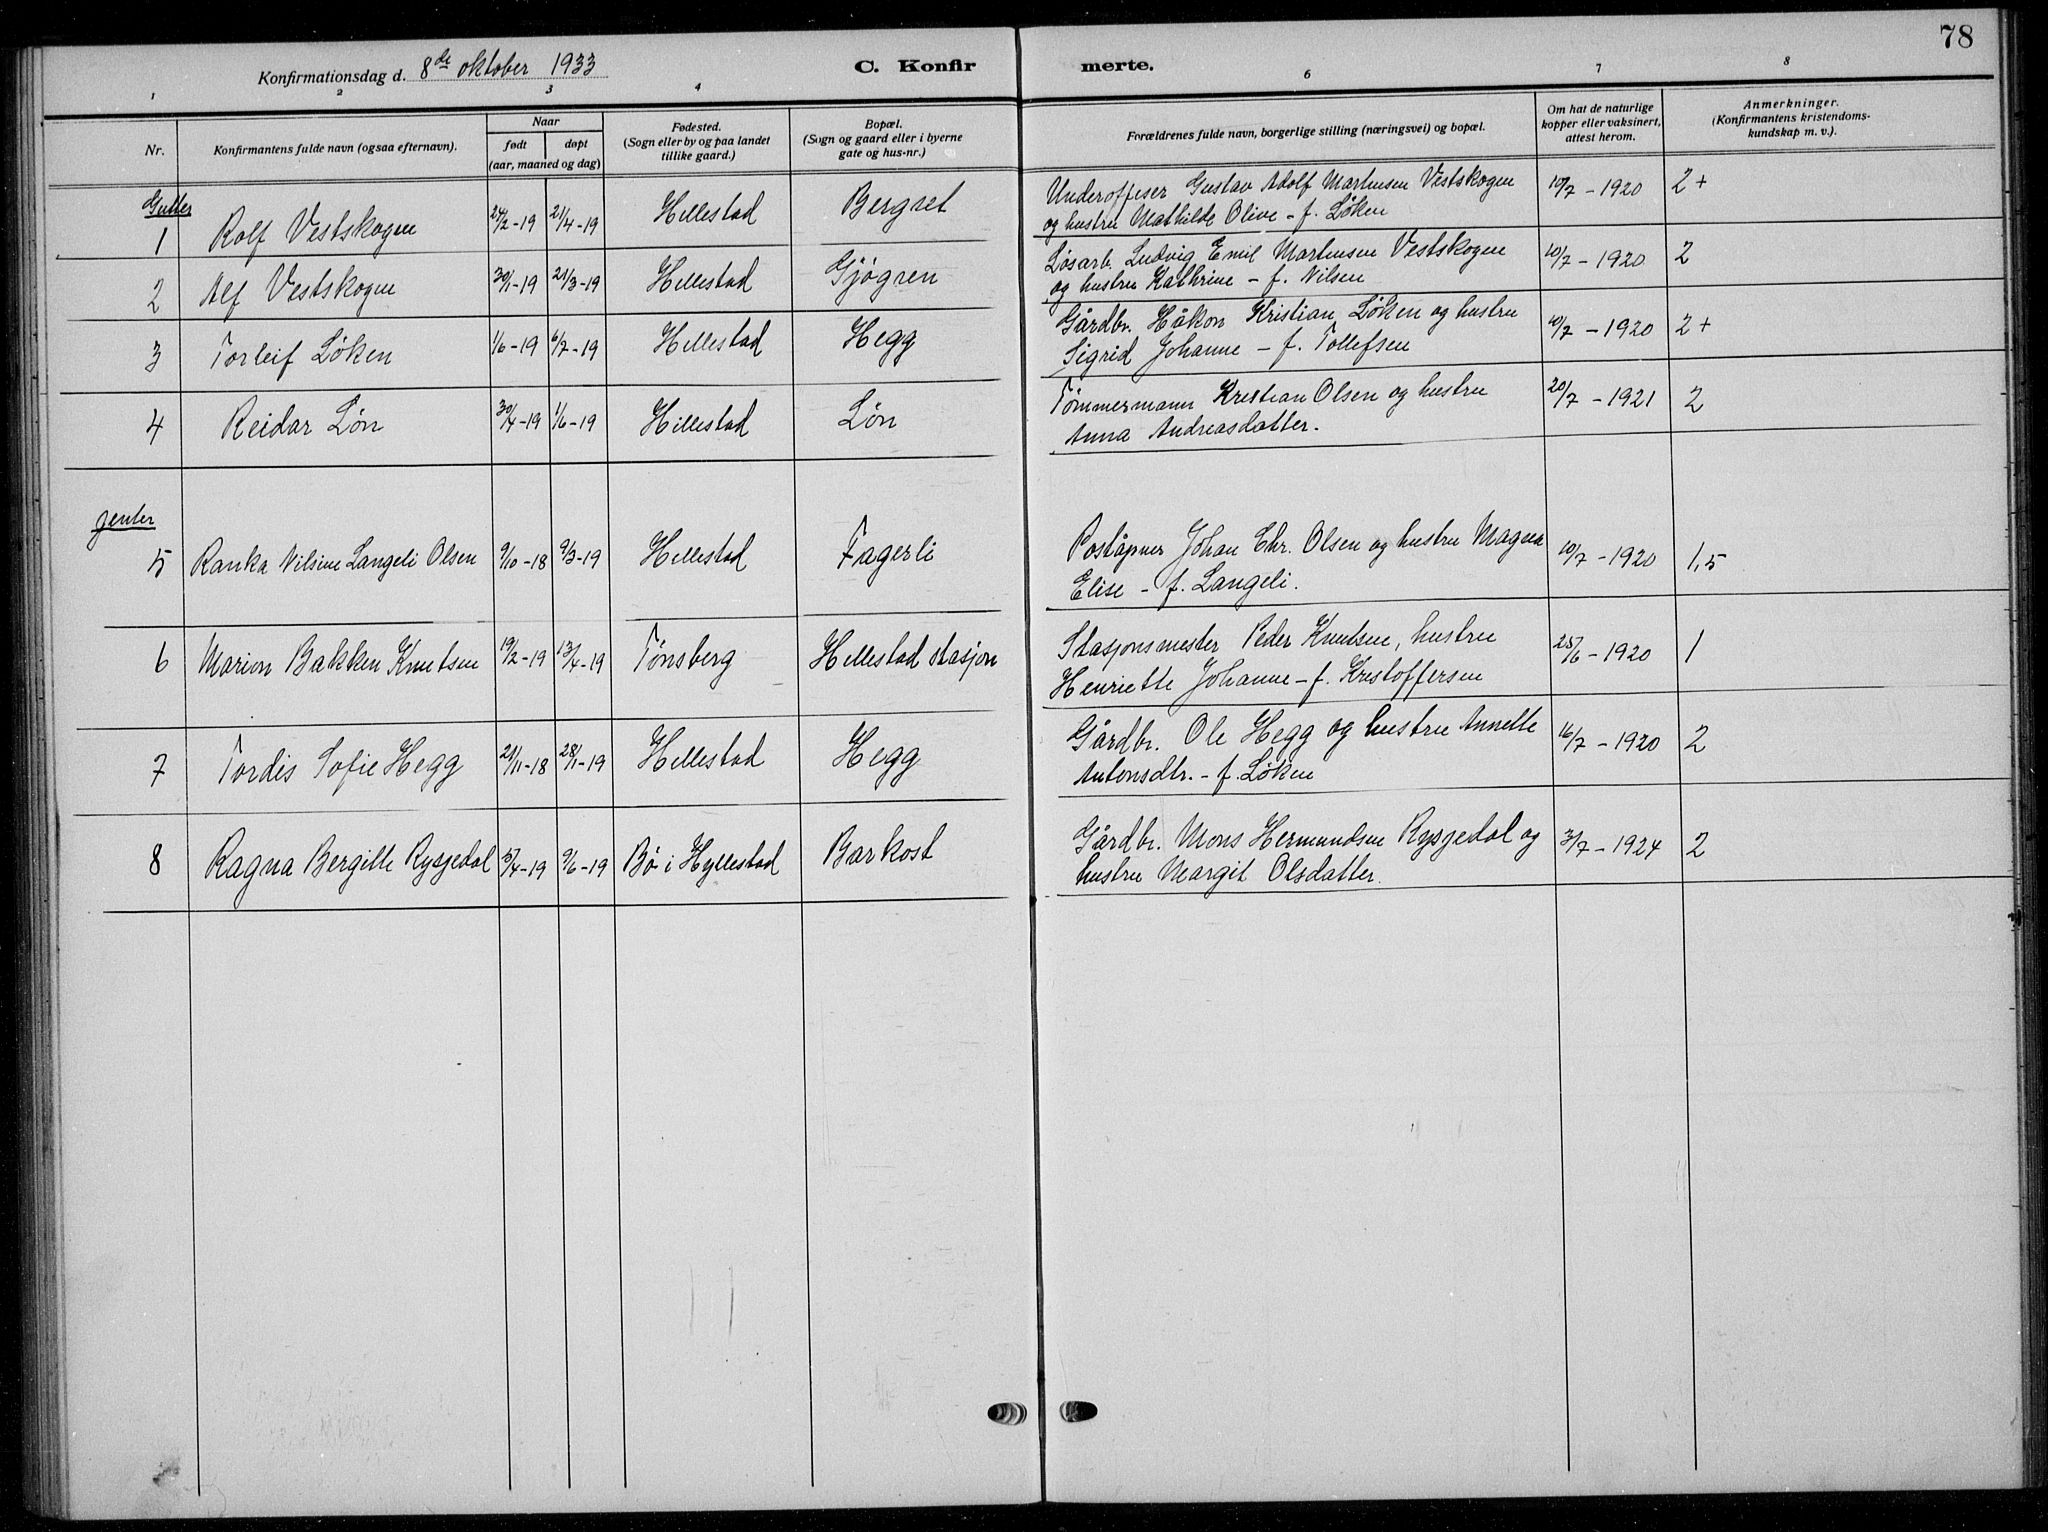 78
Konfirmationsdag d. 8de oktober 1933 C. Konfirmerte.
1 2 3 4 6 7 8
Nr.
Konfirmantens fulde navn (ogsaa efternavn).
Naar
født døpt
(aar, maaned og dag)
Fødested.
(Sogn eller by og paa landet
tillike gaard.)
Bopæl.
(Sogn og gaard eller i byerne
gate og hus-nr.)
Forældrenes fulde navn, borgerlige stilling (næringsvei) og bopæl.
Om hat de naturlige
kopper eller vaksinert,
attest herom.
Anmerkninger.
(Konfirmantens kristendoms-
kundskap m. v.).
Gutter
1 Rolf Vestskogen 24/2-19 21/4-19 Hillestad Bergset Underoffiser Gustav Adolf Martinsen Vestskogen 10/7 - 1920 2+
og hustru Mathilde Olive - f. Løken
2 Alf Vestskogen 30/1-19 21/3-19 Hillestad Gjøgren Løsarb. Ludvig Emil Martinsen Vestskogen 10/7 - 1920 2
og hustru Kathrine - f. Nilsen
3 Torleif Løken 1/6-19 6/7-19 Hillestad Hegg Gårdbr. Håkon Kristian Løken og hustru 10/7 - 1920 2+
Sigrid Johanne - f. Tollefsen
4 Reidar Løn 30/4-19 1/6-19 Hillestad Løn Tømmermann Kristian Olsen og hustru 20/7 - 1921 2
Anna Andreasdatter.
Jenter
5 Ranka Nilsine Langeli Olsen 9/10-18 9/3-19 Hillestad Fagerli Poståpner Johan Chr. Olsen og hustru Magna 10/7 - 1920 1,5
Elise - f. Langeli.
6 Marion Bakken Knutsen 19/2-19 13/4-19 Tønsberg Hillestad stasjon Stasjonsmester Peder Knutsen, hustru 25/6 - 1920 1
Henriette Johanne - f. Kristoffersen
7 Tordis Sofie Hegg 21/11-18 28/1-19 Hillestad Hegg Gårdbr. Ole Hegg og hustru Annette 16/7 - 1920 2
Antonsdtr. - f. Løken
8 Ragna Bergitte Rysjedal 5/4-19 9/6-19 Bø i Hyllestad Barkost Gårdbr. Mons Hermundsen Rysjedal og 3/7 - 1924 2
hustru Margit Olsdatter.